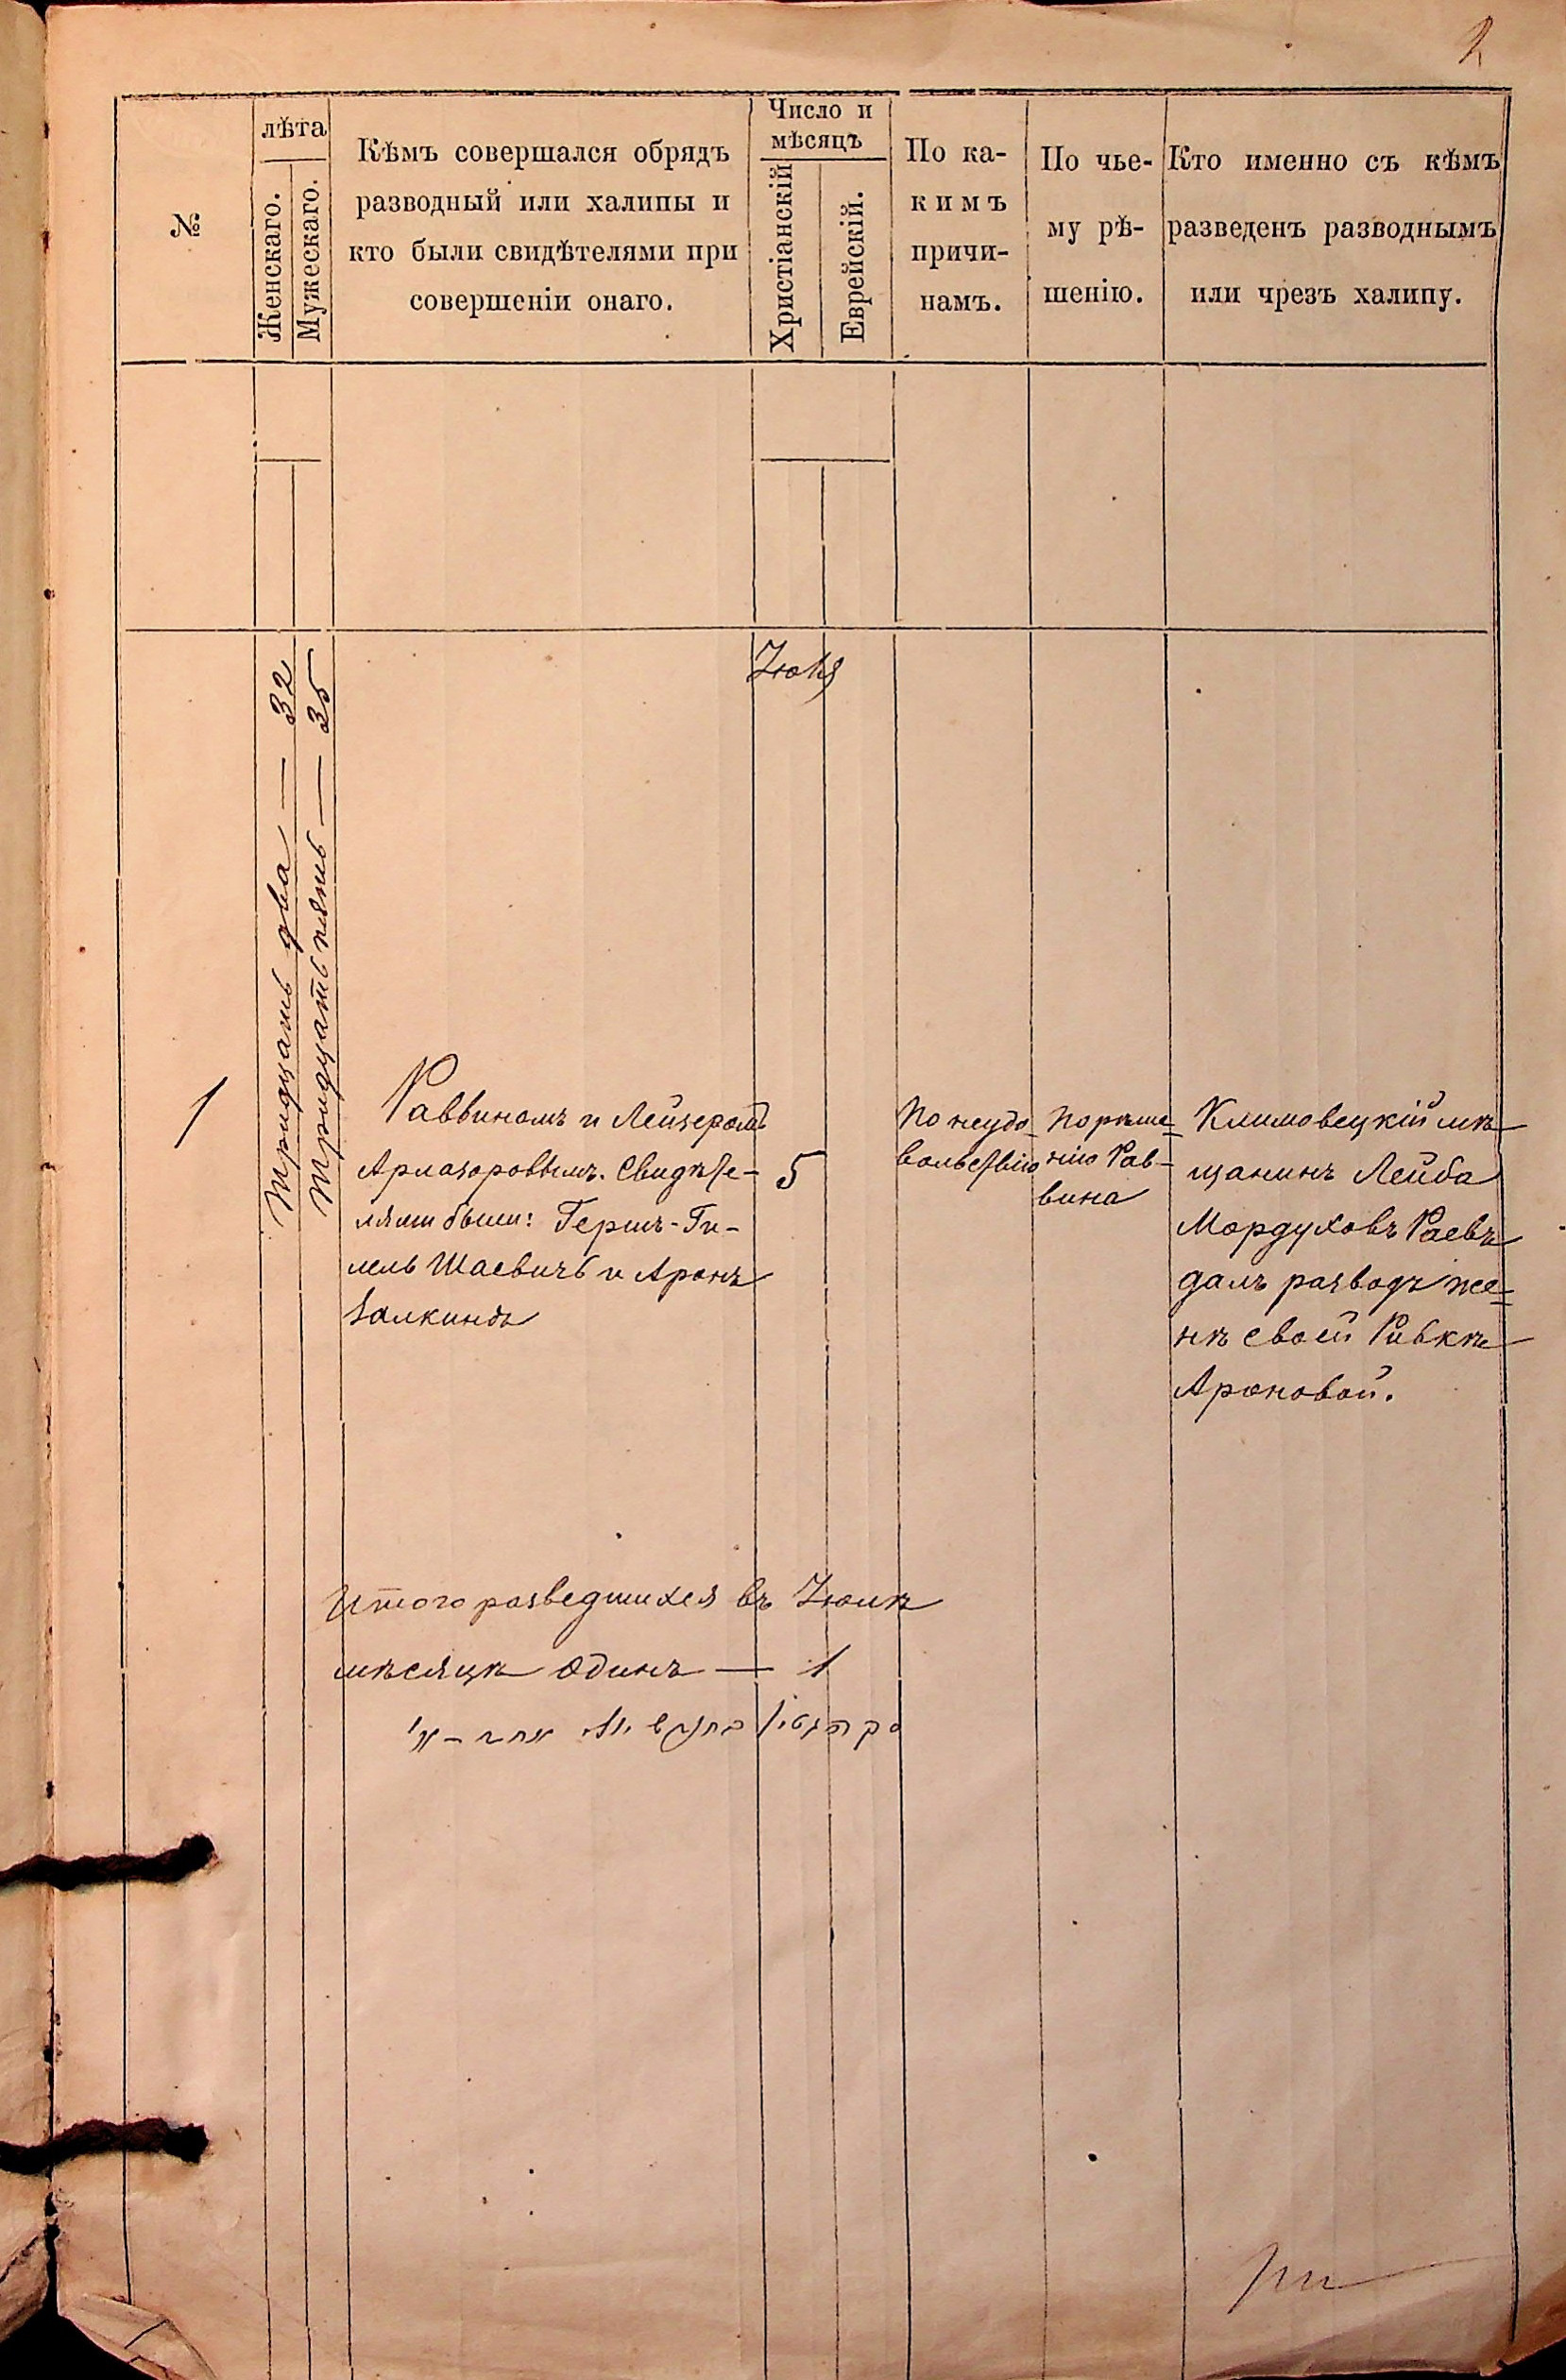 2
№
лѣта
Женскаго.
Мужескаго.
Кѣмъ совершался обрядъ
разводный или халипы и
кто были свидѣтелями при
совершеніи онаго.
Число и
мѣсяцъ
Христіанскій
Еврейскій.
По ка-
кимъ
причи-
намъ.
По чье-
му рѣ-
шенію.
Кто именно съ кѣмъ
разведенъ разводнымъ
или чрезъ халипу.
Іюля
1
Тридцать два — 32
Тридцать пять — 35
Раввиномъ и Лейзеромъ
Арлазоровымъ. Свидѣте-
лями были: Гершъ-Ги-
лель Шаевичъ и Аронъ
Залкиндъ
5
По неудо-
вольствію
По рѣше-
нію Рав-
вина
Климовецкій мѣ-
щанинъ Лейба
Мордуховъ Раевъ
далъ разводъ же-
нѣ своей Ривкѣ
Ароновой.
Итого разведшихся въ Іюлѣ
мѣсяцѣ одинъ — 1